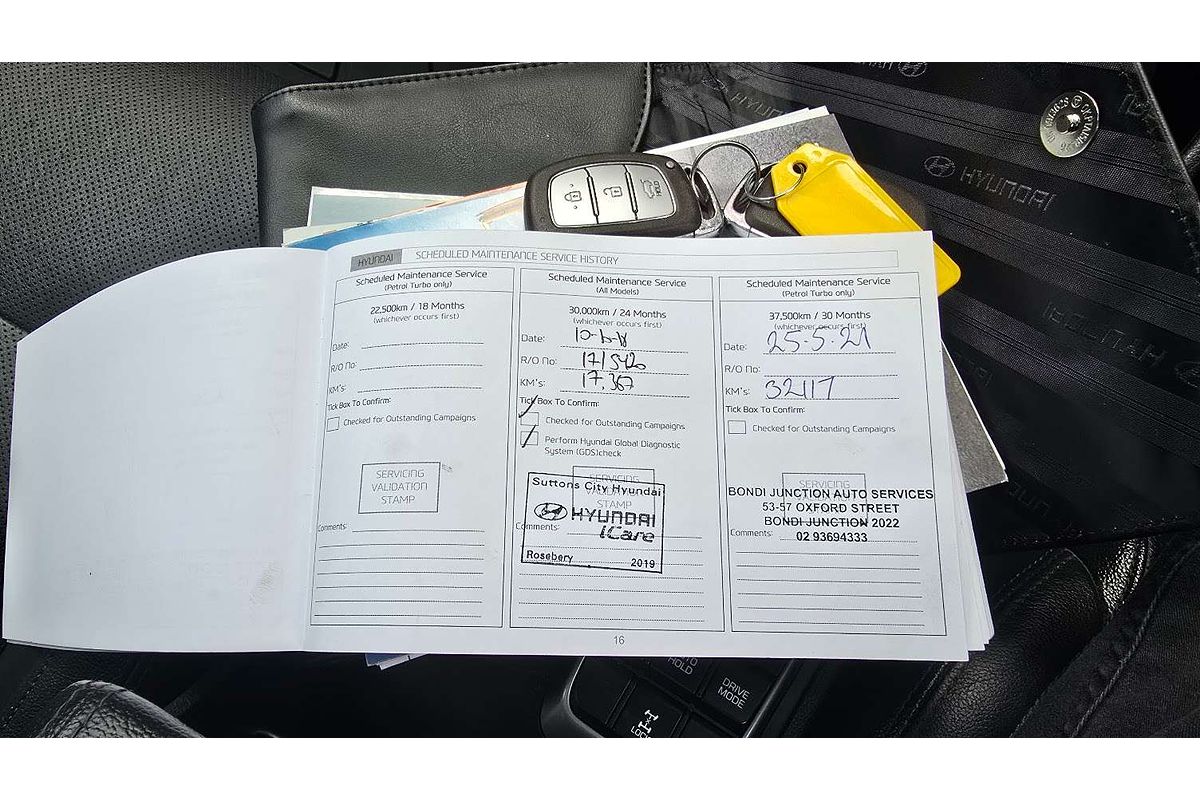 HYUNDAI
HYUNDAI
HYUNDAI SCHEDULED MAINTENANCE SERVICE HISTORY
Scheduled Maintenance Service
(Petrol Turbo only)
22,500km / 18 Months
(whichever occurs first)
Date:
R/O No:
KM's:
Tick Box To Confirm:
Checked for Outstanding Campaigns
SERVICING
VALIDATION
STAMP
Comments:
Scheduled Maintenance Service
(All Models)
30,000km / 24 Months
(whichever occurs first)
Date:
R/O No: 171540
KM's: 17,367
Tick Box To Confirm:
Checked for Outstanding Campaigns
Perform Hyundai Global Diagnostic
System (GDS)check
SERVICING
STAMP
Suttons City Hyundai
HYUNDAI
iCare
Comments:
Rosebery 2019
Scheduled Maintenance Service
(Petrol Turbo only)
37,500km / 30 Months
(whichever occurs first)
Date: 25-5-21
R/O No:
KM's: 32117
Tick Box To Confirm:
Checked for Outstanding Campaigns
SERVICING
BONDI JUNCTION AUTO SERVICES
53-57 OXFORD STREET
BONDI JUNCTION 2022
Comments: 02 93694333
16
HOLD
DRIVE
MODE
LOCK